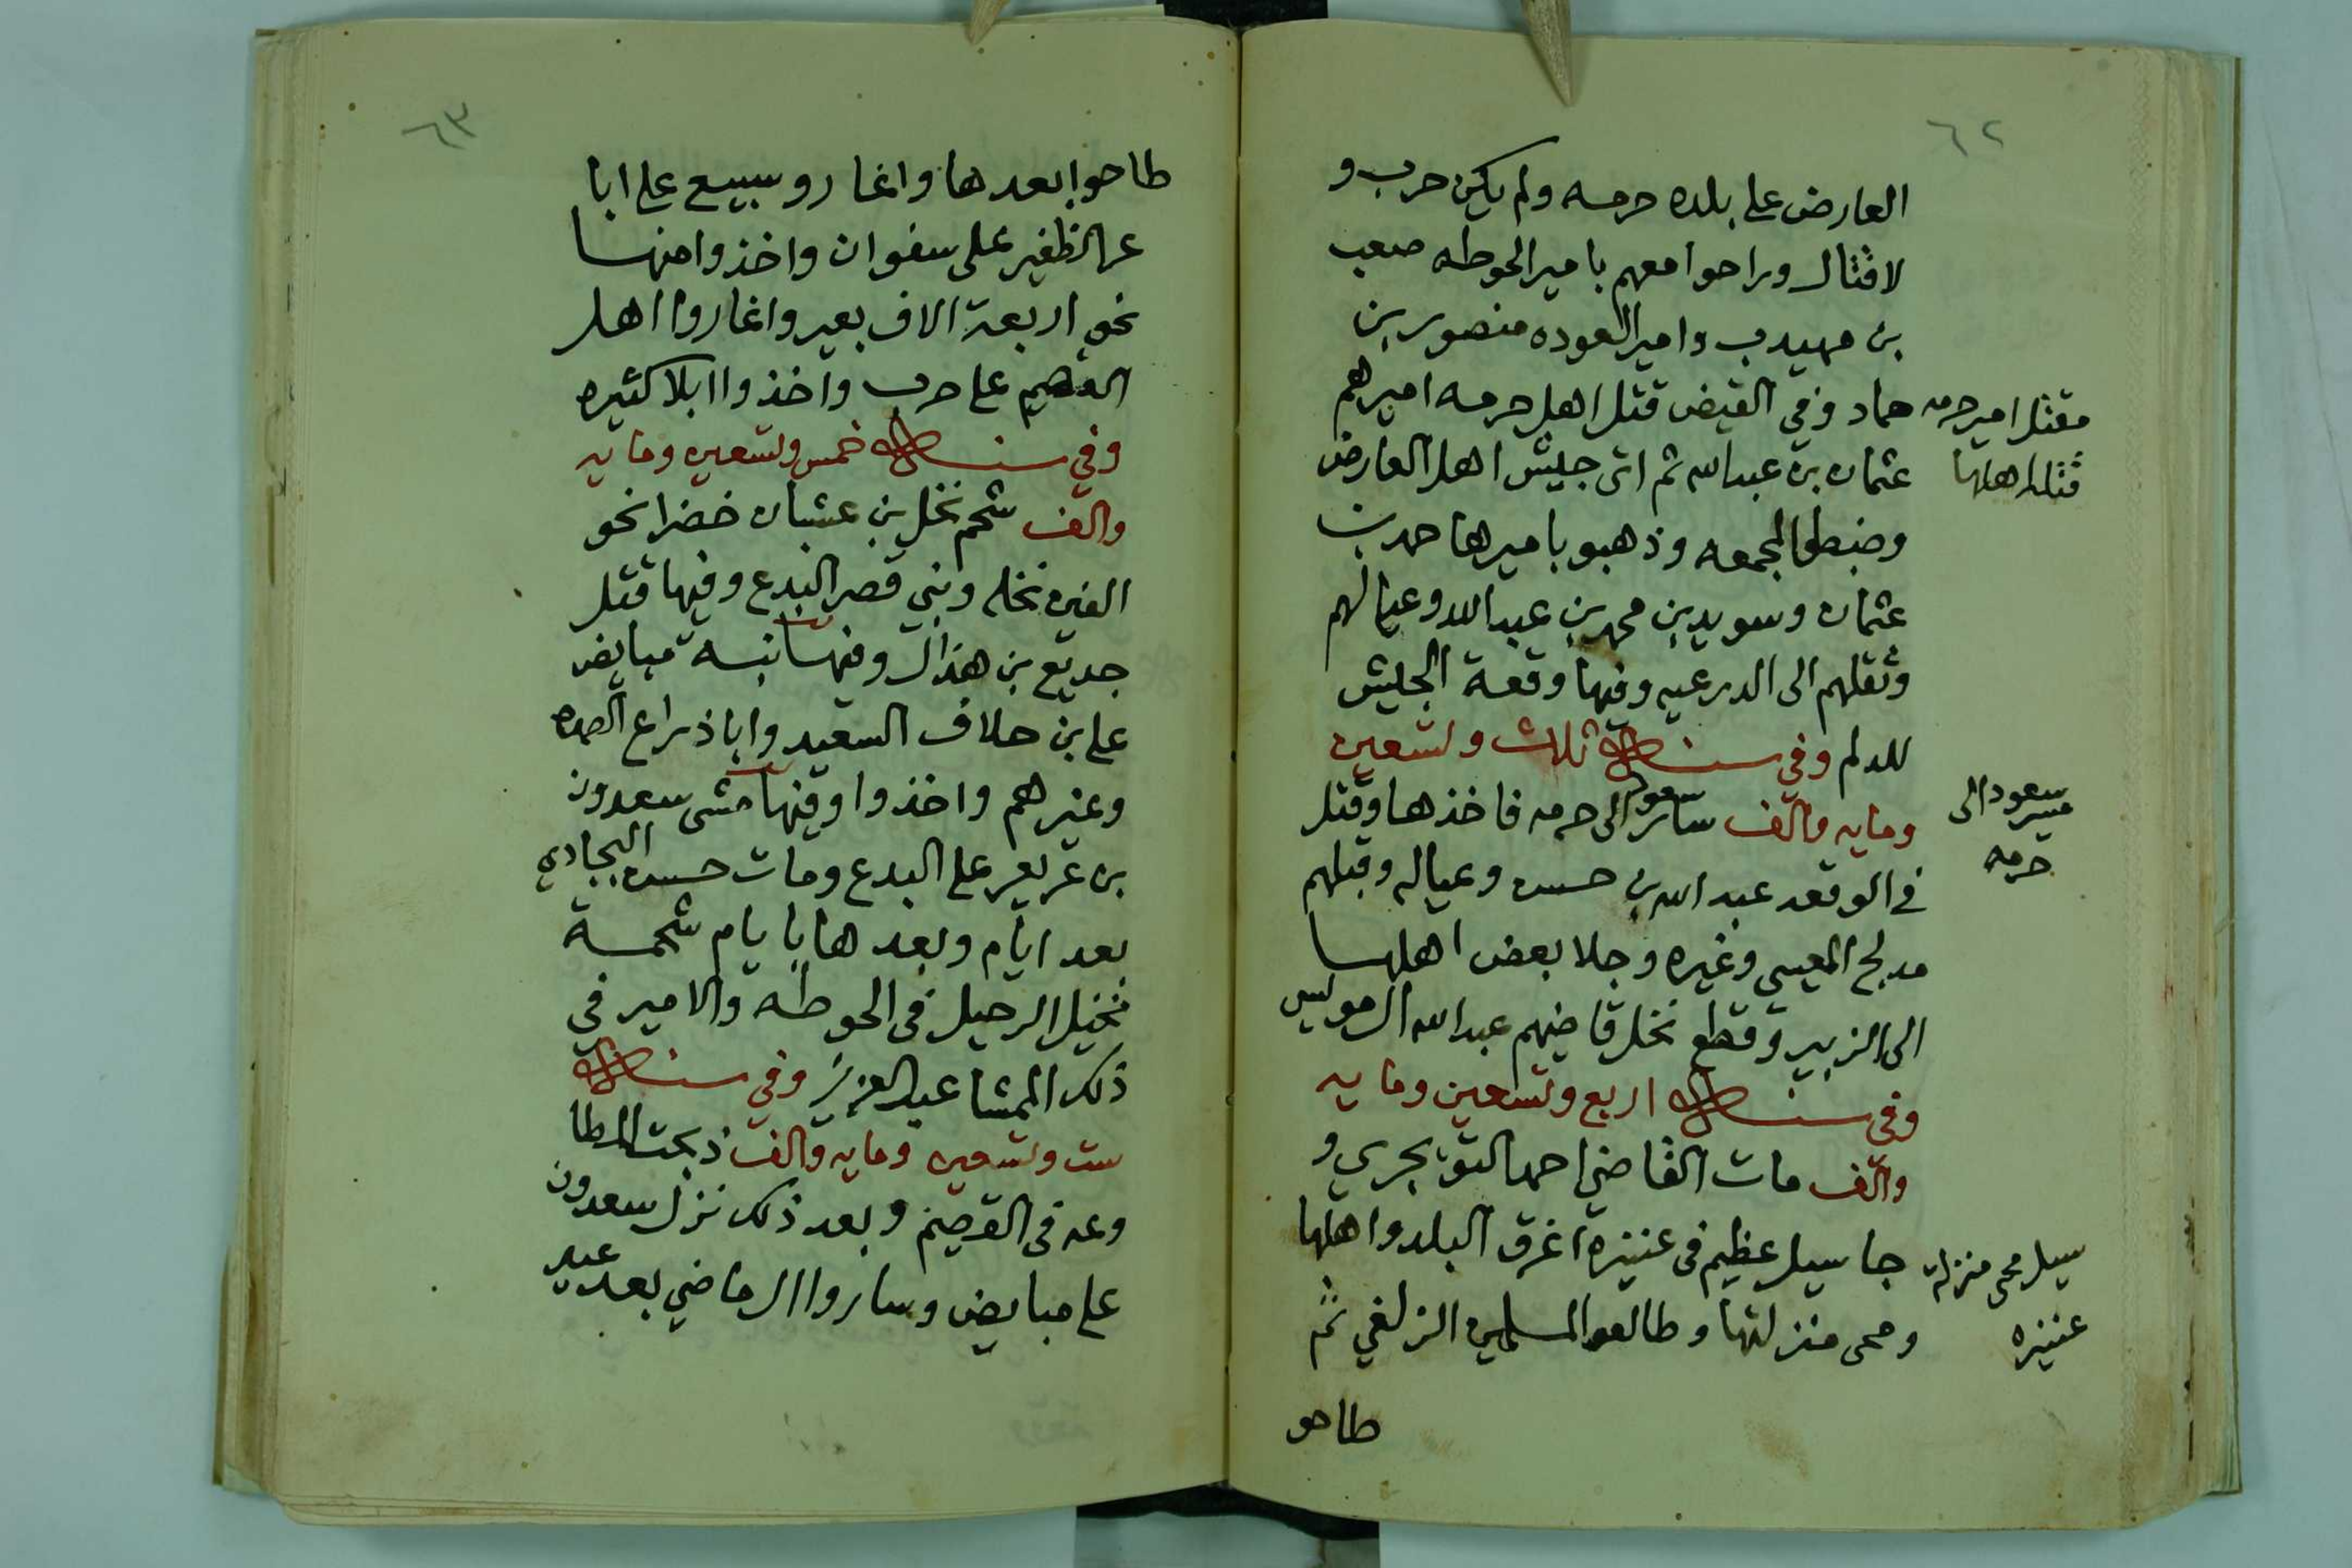 ٦٢
العارض على بلده حرمه ولم يكن حرب و
لا قتال وراحوا معهم بامير الحوطه صعب
بن مهيدب وامير العوده منصور بن
حماد وفي القيض قتل اهل حرمه اميرهم
مقتل امير حرمه
قتله اهلها
عثمان بن عبدالله ثم اتى جيش اهل العارض
وضبطوا المجمعه وذهبو باميرها حمد بن
عثمان وسويد بن محمد بن عبدالله وعيالهم
وثقلهم الى الدرعيه وفيها وقعة الجيش
للدلم وفي سنة ثلاث وتسعين
ومايه والف سار سعود الى حرمه فاخذها وقتل
مسير سعود الى
حرمه
في الوقعه عبدالله بن حسن وعياله وقتلهم
مدلج المعيي وغيره وجلا بعض اهلها
الى الزبير وقطع نخل قاضيهم عبدالله المويس
وفي سنة اربع وتسعين ومايه
والف مات القاضي احمد التويجري و
جا سيل عظيم في عنيزه اغرق البلد واهلها
سيل محى منزلة
عنيزه
ومحى منزلتها وطالعوا المسلمين الزلفي ثم
طاحو
٦٣
طاحوا بعدها واغارو سبيع على ابا
عر الظفير على سفوان واخذوا منها
نحو اربعة الاف بعير واغاروا اهل
القصيم على حرب واخذوا ابلا كثيره
وفي سنة خمس وتسعين ومايه
والف شحم نخل بن عشبان خضرا نحو
الفين نخله وبني قصر البدع وفيها قتل
جديع بن هذال وفيها نبسة مبايض
على بن حلاف السعيد وابا ذراع الصمده
وغيرهم واخذوا وفيها مشى سعدون
بن عريعر على البدع ومات حسن البجادي
بعد ايام وبعدها بايام شحمة
نخيل الرحيل في الحوطه والامير في
ذلك الممشا عبدالعزيز وفي سنة
ست وتسعين ومايه والف ذبحت المطا
وعه في القصيم وبعد ذلك نزل سعدون
على مبايض وساروا الرماضي بعد عيد